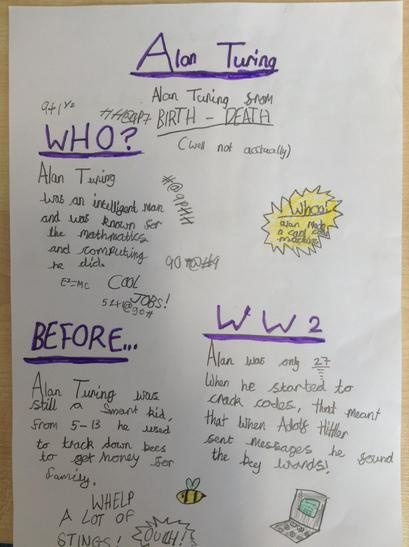 Alan Turing
Alan Turing from
BIRTH - DEATH
(Well not actually)
WHO?
Alan Turing
was an intelligent man
and was known for
the mathmatics
and computing
he did.
E²=MC
COOL
JOBS!
Whoa!
alan made
a
BEFORE...
Alan Turing was
still a smart kid,
from 5-13 he used
to track down bees
to get money for
family.
WHELP
A LOT OF
STINGS!
OUCH!
WW2
Alan was only 27
When he started to
crack codes, that meant
that when Adolf Hitler
sent messages he found
the key words!